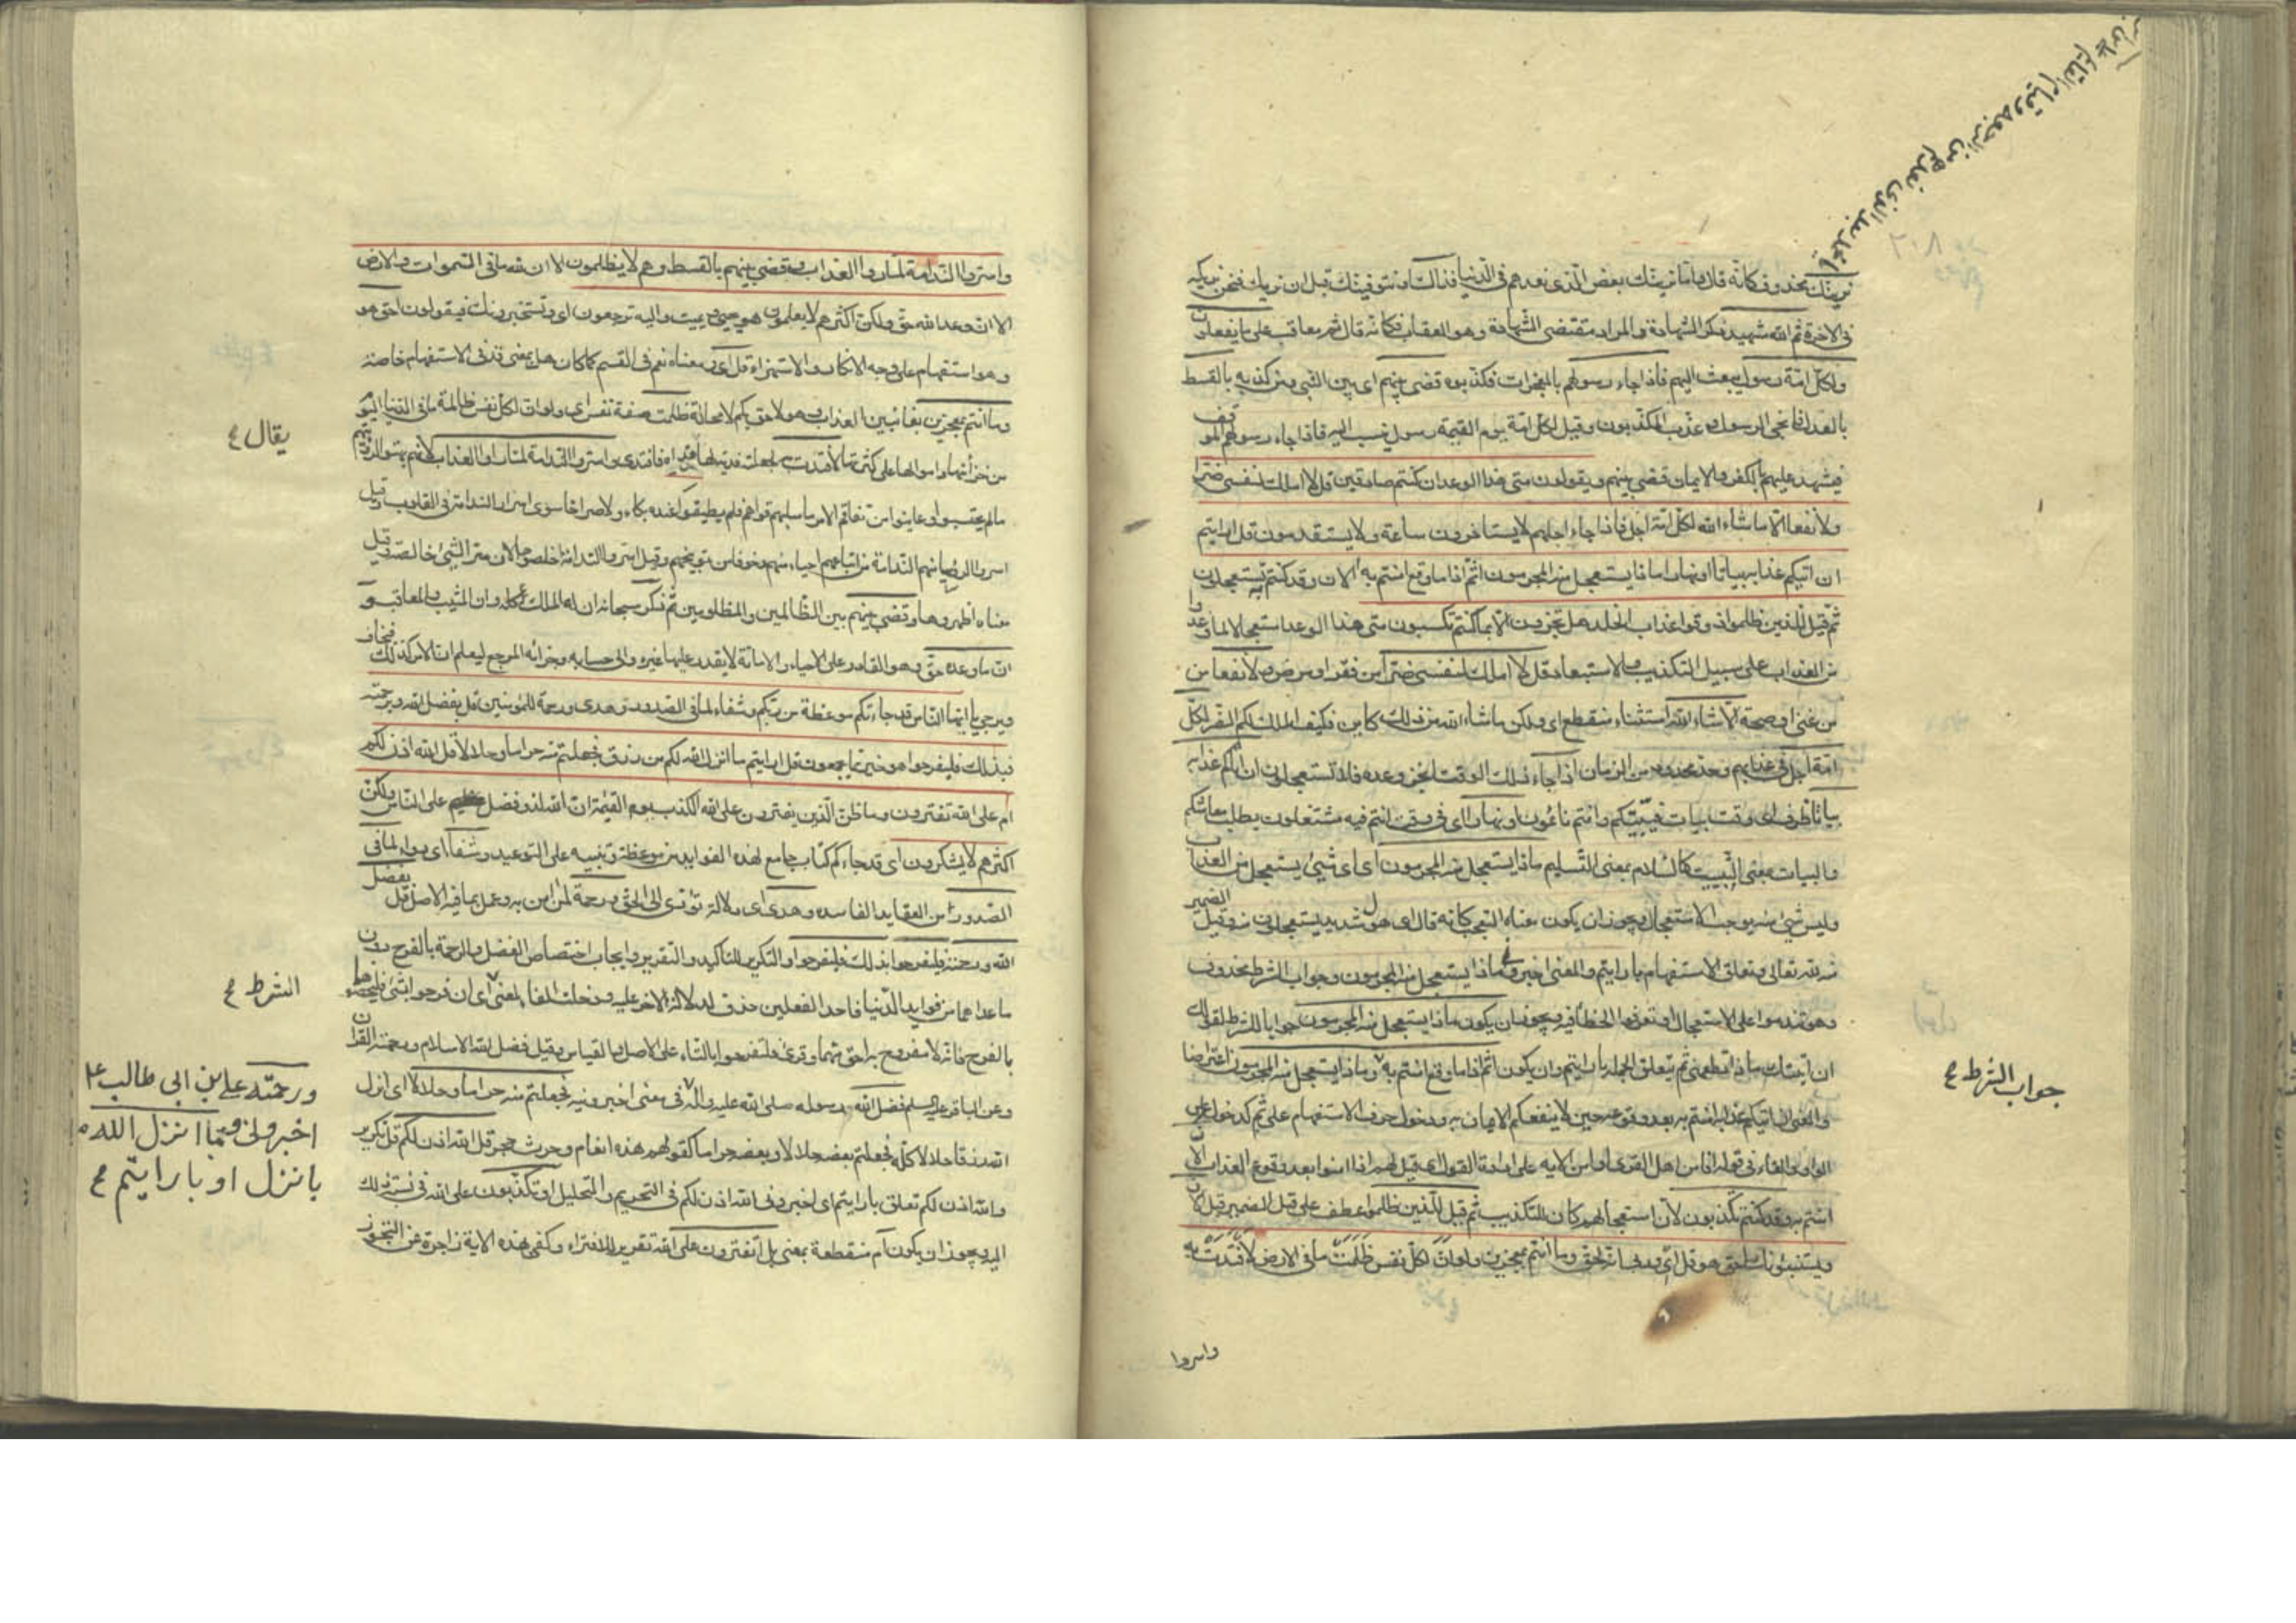 يا محمد بعد الذي نعدهم من الرجعة وقيام القائم
نرينك محذوف كانه قال واما نرينك بعض الذي نعدهم في الدنيا فذاك او نتوفينك قبل ان نريك فنحن نريكه
في الاخرة ثم الله شهيد ذكر الشهادة والمراد مقتضى الشهادة وهو العقاب فكانه قال ثم معاقب على ما يفعلون
ولكل امة رسول يبعث اليهم فاذا جاء رسولهم بالمعجزات فكذبوه قضي بينهم اي بين النبي ومن كذب به بالقسط
بالعدل فانجي الرسول وعذب المكذبون وقيل لكل امة يوم القيمة رسول تنسب اليه فاذا جاء رسولهم الموقف
فيشهد عليهم بالكفر والايمان قضي بينهم ويقولون متى هذا الوعد ان كنتم صادقين قل لا املك لنفسي ضرا
ولا نفعا الا ما شاء الله لكل امة اجل فاذا جاء اجلهم لا يستاخرون ساعة ولا يستقدمون قل ارايتم
ان اتيكم عذابه بياتا او نهارا ماذا يستعجل منه المجرمون اثم اذا ما وقع امنتم به الان وقد كنتم به تستعجلون
ثم قيل للذين ظلموا ذوقوا عذاب الخلد هل تجزون الا بما كنتم تكسبون متى هذا الوعد استعجالا لما وعدوا
من العذاب على سبيل التكذيب والاستبعاد قل لا املك لنفسي ضرا من فقر او مرض ولا نفعا من
من غنى او صحة الا ما شاء الله استثناء منقطع اي ولكن ما شاء الله من ذلك كاين فكيف املك لكم الضر لكل
امة اجل في عذابهم وحد محدود من الزمان اذا جاء ذلك الوقت انجز وعده فلا تستعجلون ان اتاكم عذابه
بياتا ظرف اي وقت بيات فبيتكم وانتم نائمون او نهارا اي في وقت انتم فيه مشتغلون بطلب معاشكم
والبيات بمعنى التبييت كالسلام بمعنى التسليم ماذا يستعجل منه المجرمون اي اي شيء يستعجل من العذاب
وليس شيء منه يوجب الاستعجال ويجوز ان يكون معناه التعجب كانه قال اي هول شديد يستعجلون منه وقيل الضمير
منه لله تعالى وتعلق الاستفهام بارايتم والمعنى اخبروني ماذا يستعجل منه المجرمون وجواب الشرط محذوف
وهو تندموا على الاستعجال او تعرفوا الخطا فيه ويجوز ان يكون ماذا يستعجل منه المجرمون جوابا للشرط كقولك
ان اتيتك ماذا تطعمني ثم يتعلق الجملة بارايتم وان يكون اثم اذا ما وقع امنتم به وماذا يستعجل منه المجرمون اعتراضا
جواب الشرط ع
والمعنى ان اتيكم عذابه امنتم به بعد وقوعه حين لا ينفعكم الايمان به ودخول حرف الاستفهام على ثم كدخوله على
الواو والفاء في قوله افامن اهل القرى او امن الايه على ارادة القول اي قيل لهم اذا امنوا بعد وقوع العذاب الان
امنتم به وقد كنتم به تكذبون لان استعجالهم كان للتكذيب ثم قيل للذين ظلموا عطف على قيل المضمر قبل الان
ويستنبئونك احق هو قل اي وربي انه لحق وما انتم بمعجزين ولو ان لكل نفس ظلمت ما في الارض لافتدت به
واسروا
واسروا الندامة لما راوا العذاب وقضي بينهم بالقسط وهم لا يظلمون الا ان لله ما في السموات والارض
الا ان وعد الله حق ولكن اكثرهم لا يعلمون هو يحيي ويميت واليه ترجعون اي ويستخبرونك فيقولون احق هو
وهو استفهام على وجه الانكار والاستهزاء قل اي ومعناه نعم في القسم كما كان هل بمعنى قد في الاستفهام خاصة
وما انتم بمعجزين بفائتين العذاب وهو لاحق بكم لا محالة ظلمت صفة نفس اي ولو ان لكل نفس ظالمة ما في الدنيا اليوم
يقال ع
من خزائنها واموالها على كثرتها لافتدت به لجعلته فدية لها فداه فافتدى واسروا الندامة لما راوا العذاب لانهم بهتوا لرؤيتهم
مالم يحتسبوا وعاينوا من تفاقم الامر ما سلبهم قواهم فلم يطيقوا عنده بكاء ولا صراخا سوى اسرار الندامة في القلوب وقيل
اسروا الرؤسا منهم الندامة من اتباعهم احياء منهم وخوفا من توبيخهم وقيل اسروا الندامة اخلصوها لان سر الشيء خالصه وقيل
معناه اظهروها وقضي بينهم بين الظالمين والمظلومين ثم ذكر سبحانه ان له الملك كله وان المثيب والمعاقب و
ان ما وعده حق وهو القادر على الاحياء والاماتة لا يقدر عليها غيره والى حسابه وجزائه المرجع ليعلم ان الامر كذلك فيخاف
ويرجي يا ايها الناس قد جاءتكم موعظة من ربكم وشفاء لما في الصدور وهدى ورحمة للمؤمنين قل بفضل الله وبرحمته
فبذلك فليفرحوا هو خير مما يجمعون قل ارايتم ما انزل الله لكم من رزق فجعلتم منه حراما وحلالا قل الله اذن لكم
ام على الله تفترون وما ظن الذين يفترون على الله الكذب يوم القيمة ان الله لذو فضل على الناس ولكن
اكثرهم لا يشكرون اي قد جاءكم كتاب جامع لهذه الفوايد من موعظة وتنبيه على التوحيد وشفاء اي دواء لما في
الصدور من العقايد الفاسده وهدى اي دلالة تؤدي الى الحق ورحمة لمن امن به وعمل بما فيه الاصل قل بفضل
الله ورحمته فليفرحوا بذلك فليفرحوا والتكرير للتاكيد والتقرير وايجاب اختصاص الفضل والرحمة بالفرح دون
ما عداهما من فوايد الدنيا فاحد الفعلين حذف لدلالة الاخر عليه ودخلت الفاء لمعنى اي ان فرحوا بشيء فليخصوهما
الشرط ع
بالفرح فانه لا مفروح به احق منهما وقرئ فلتفرحوا بالتاء على الاصل والقياس وقيل فضل الله الاسلام ورحمته القران
وعن الباقر عليه السلم فضل الله رسوله صلى الله عليه واله في معنى اخبرونيه فجعلتم منه حراما وحلالا اي انزل
ورحمته علي بن ابي طالب ع
اخبروني وما انزل الله
بانزل او بارايتم ع
الله رزقا حلالا كله فجعلتم بعضه حلالا وبعضه حراما كقولهم هذه انعام وحرث حجر قل الله اذن لكم قل تكرير
والله اذن لكم تعلق بارايتم اي اخبروني الله اذن لكم في التحريم والتحليل ام تكذبون على الله في نسبة ذلك
اليه ويجوز ان يكون ام منقطعة بمعنى بل اتفترون على الله تقريرا للافتراء وكفى بهذه الاية زاجرة عن التجوز